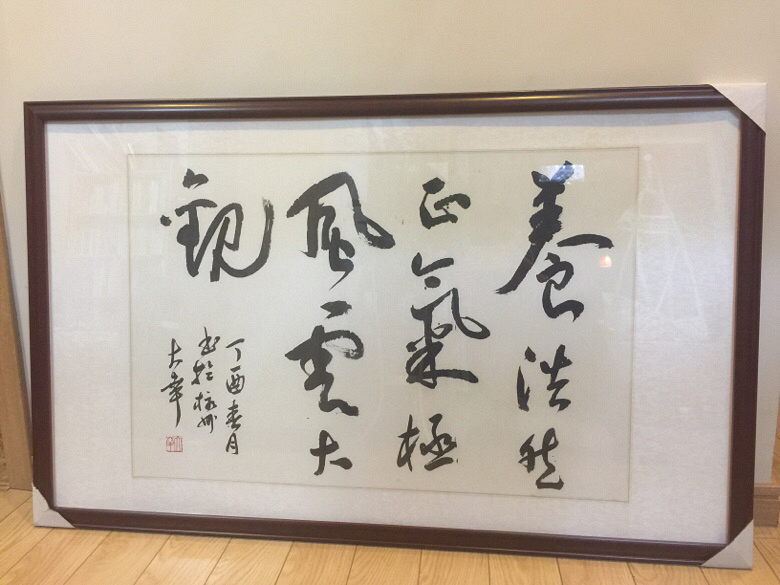 養浩然
正氣極
風雲大
觀
丁酉春月
書於杭州
大年